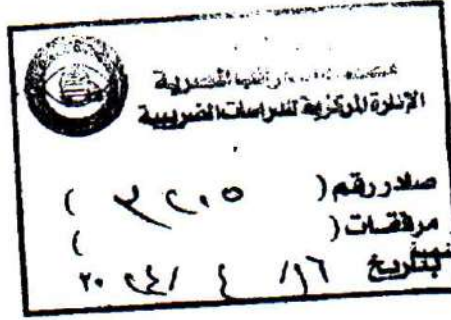 المصرية
الإدارة المركزية للدراسات الضريبية
صادر رقم ( ٣٢٠٥ )
مرفقات ( )
بتاريخ ١٦/ ٤ /٢٠٢٤